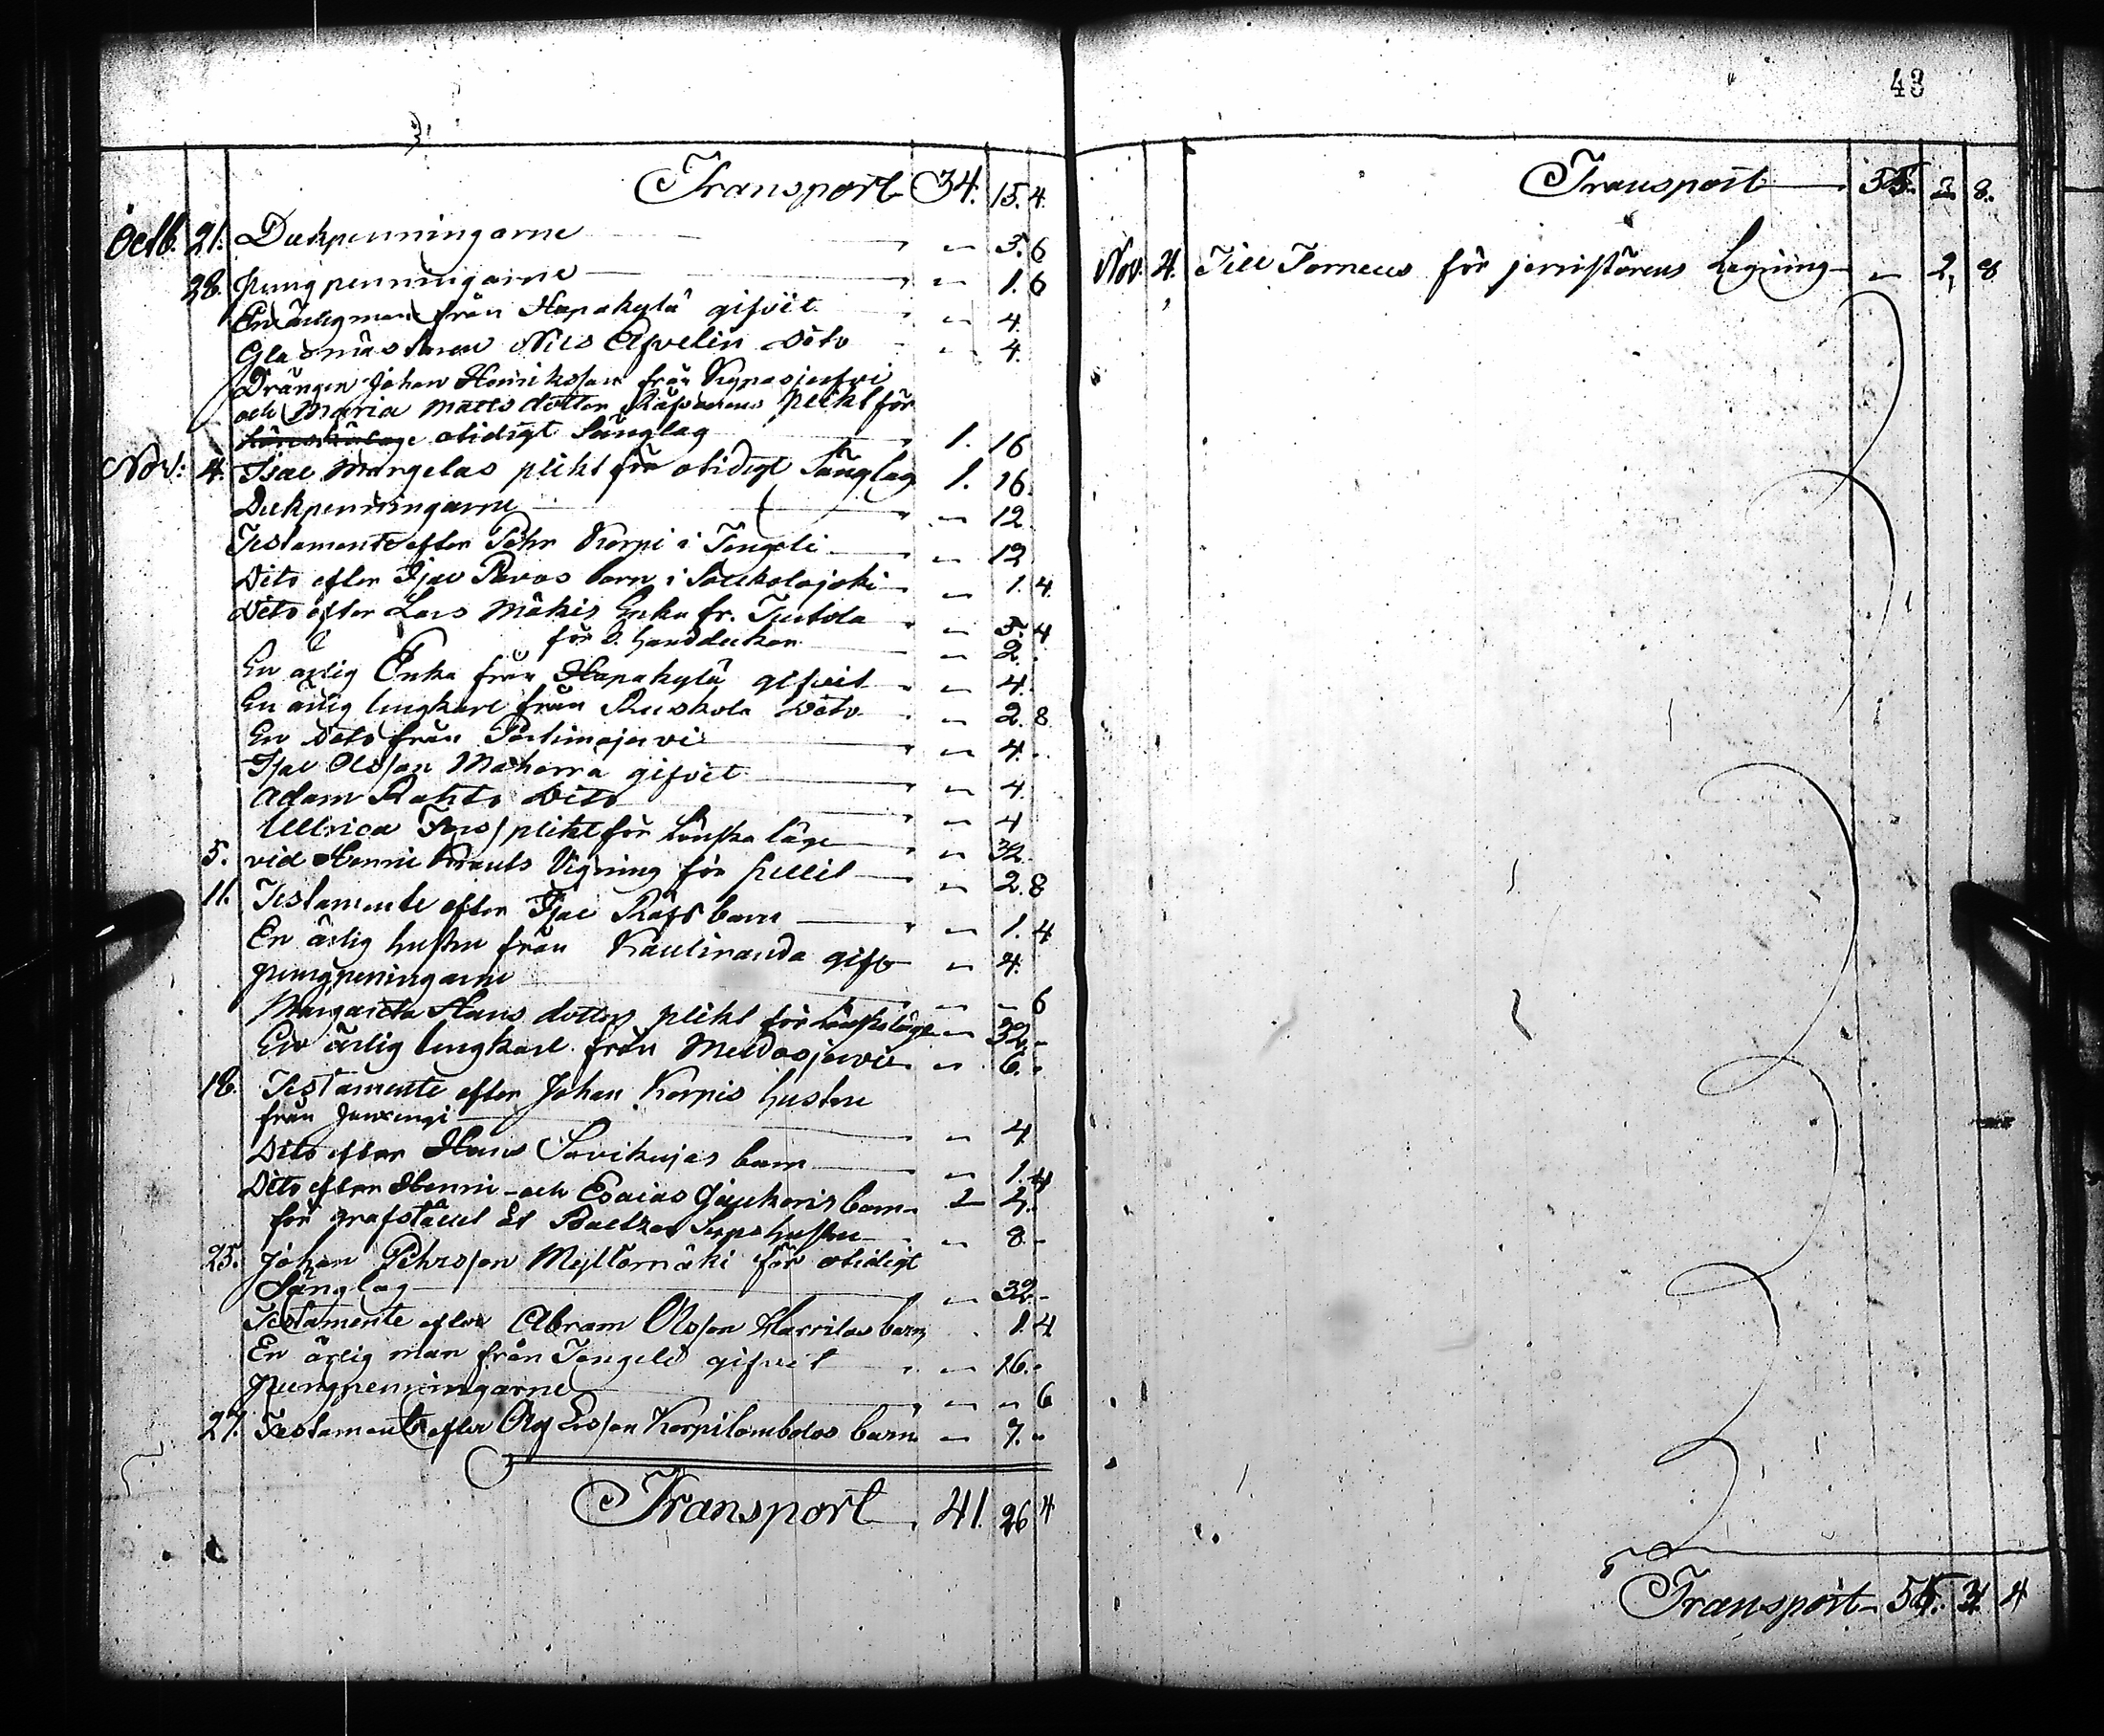 Transport 34. 15. 4.
Octb. 21. Dukpenningarne " 5. 6
28. pungpenningarne " 1. 6
En ärlig man från Hapakylä gifvit " 4.
Glasmästaren Nils Afvelin dito " 4.
Drängen Johan Henriksson från
och Maria Mattsdotter plikt för
otidigt Sänglag 1. 16
Nov: 4. Isac Margelas plikt för otidigt Sänglag 1. 16.
Dukpenningarne " 12
Testamente efter Pehr Korpi i Tengeli " 12
Dito efter Isac barn i " 1. 4.
Dito efter Lars Mäkis Enka fr. Turtola " 5. 4
för S. handduken " 2.
En ärlig Enka från Hapakylä gifvit " 4.
En ärlig ungkarl från Ruskola dito " 2. 8
En dito från Portimojervi " 4.
Isac Olsson gifvit " 4.
Adam Rahto Dito " 4
Ullrica plikt för lönskaläge " 32.
5. vid Henric Krauts Vigning för pellit " 2. 8
11. Testamente efter Isac Räfs barn " 1. 4
En ärlig hustru från Kauliranda gifv " 4.
pungpeningarne " " 6
Margareta Hans dotters plikt för lönskeläge " 32. "
En ärlig ungkarl från Meldosjervi " 6. "
18. Testamente efter Johan Korpis hustru
från Juoxengi " 4
Dito efter Hans Savikujas barn " 1. 4
Dito efter Henric och Esaias barn 2.
för grafstället åt Baltzar hustru " 8 "
25. Johan Pehrsson för otidigt
Sänglag " 32. "
Testamente efter Abram Olsson Harrilas barn . 1. 4
En ärlig man från Tengeli gifvit " 16. "
Pungpenningarne " " 6
27. Testamente efter Olof Ersson Korpilombolos barn " 7. "
Transport 41. 26 4
43
Transport 55. 2. 8.
Nov. 4. Till Torneus för jernstörens Lagning " 2, 8
Transport 55. 4. 4